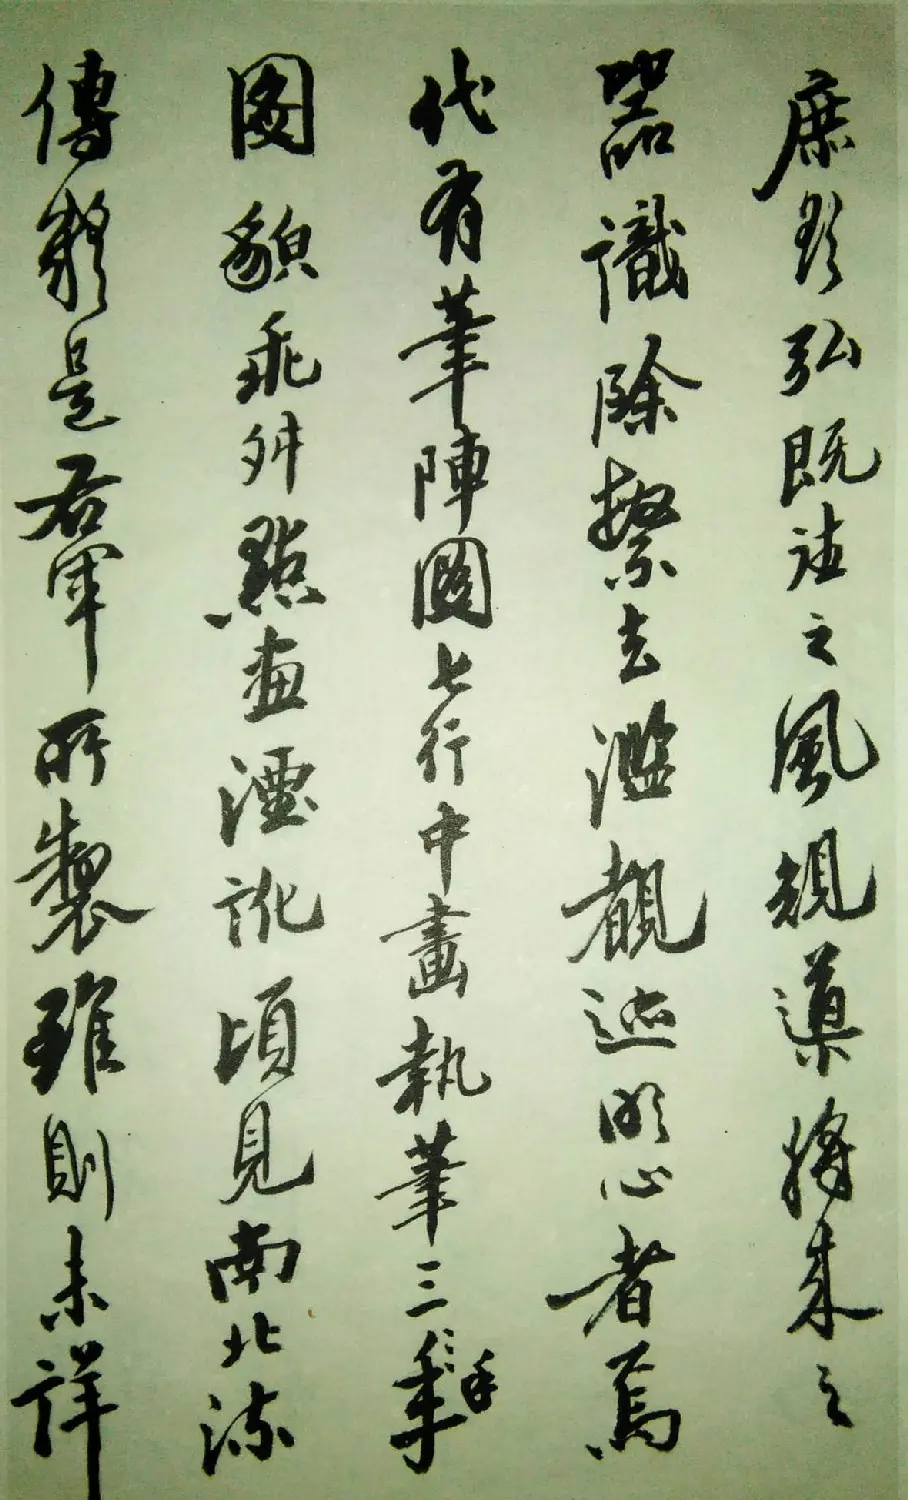 庶欲弘既往之風規導將來之
器識除繁去濫覩迹明心者焉
代有筆陣圖七行中畫執筆三手
圖貌乖舛點畫湮訛頃見南北流
傳疑是右軍所製雖則未詳